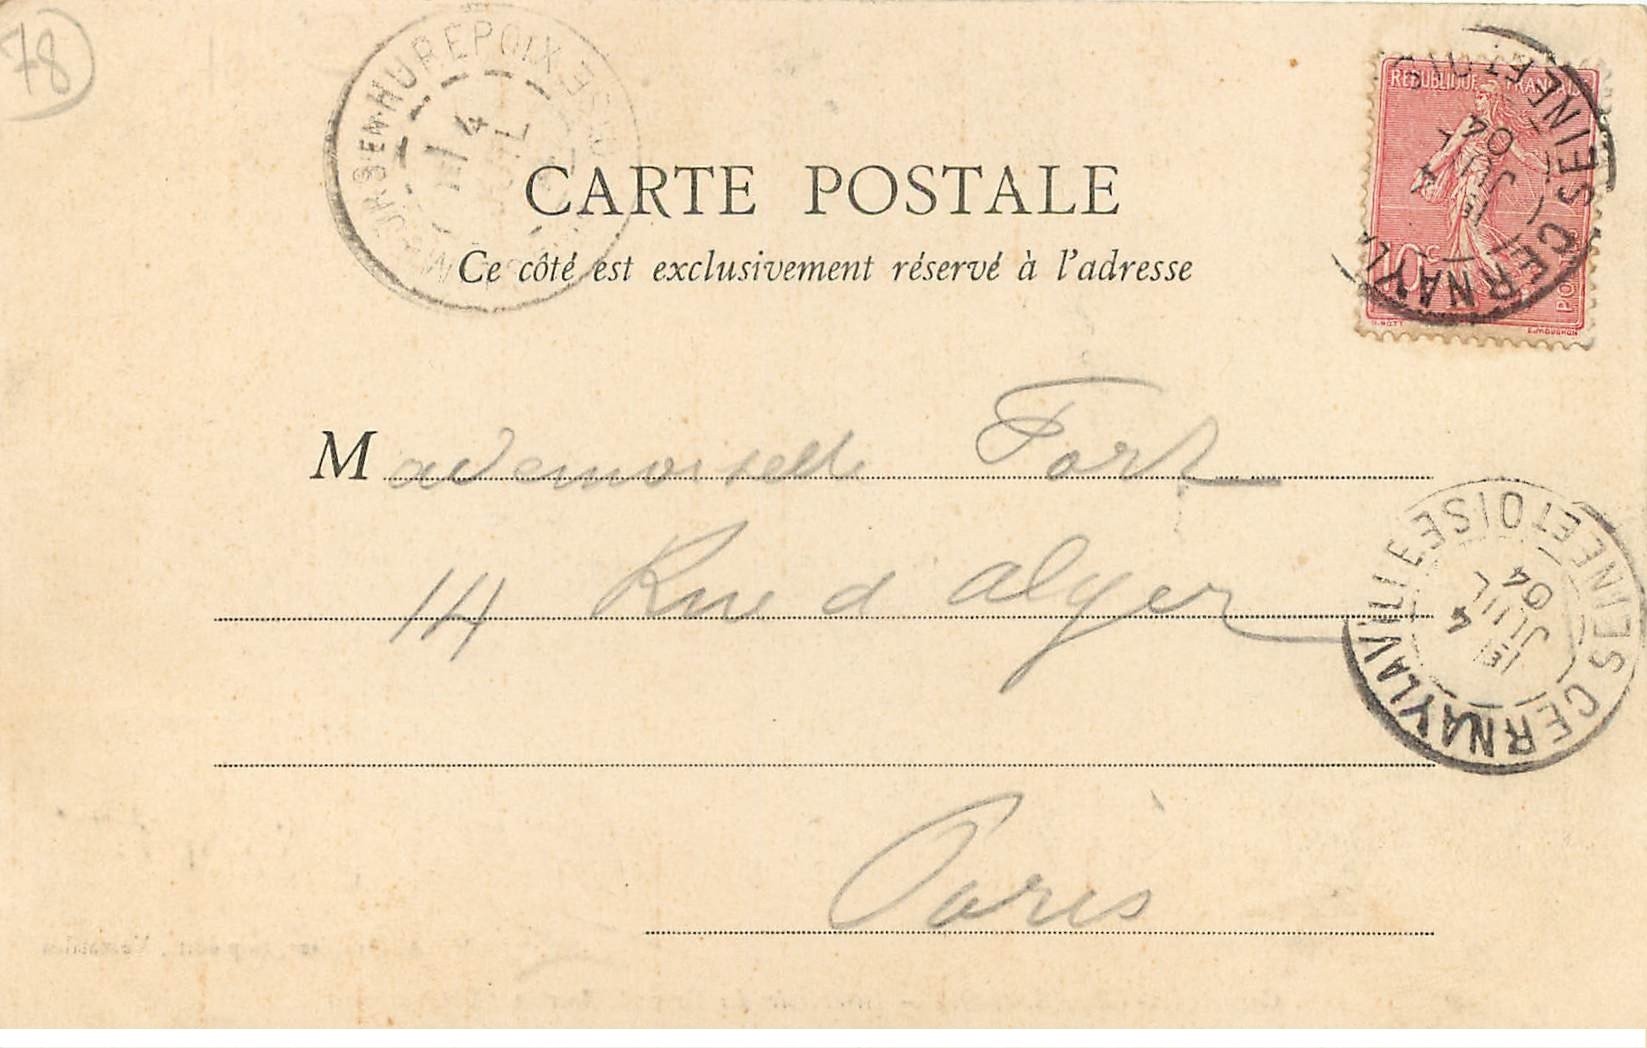 78
EN-HUREPOIX
4
CARTE POSTALE
Ce côté est exclusivement réservé à l'adresse
REPUBLIQUE FRANÇAISE
10c
CERNAY LA
SEINE ET OISE
1E
4
JUIL
04
Mademoiselle Fort
14 Rue d'alger
Paris
CERNAY LA VILLE
SEINE ET OISE
1E
4
JUIL
04